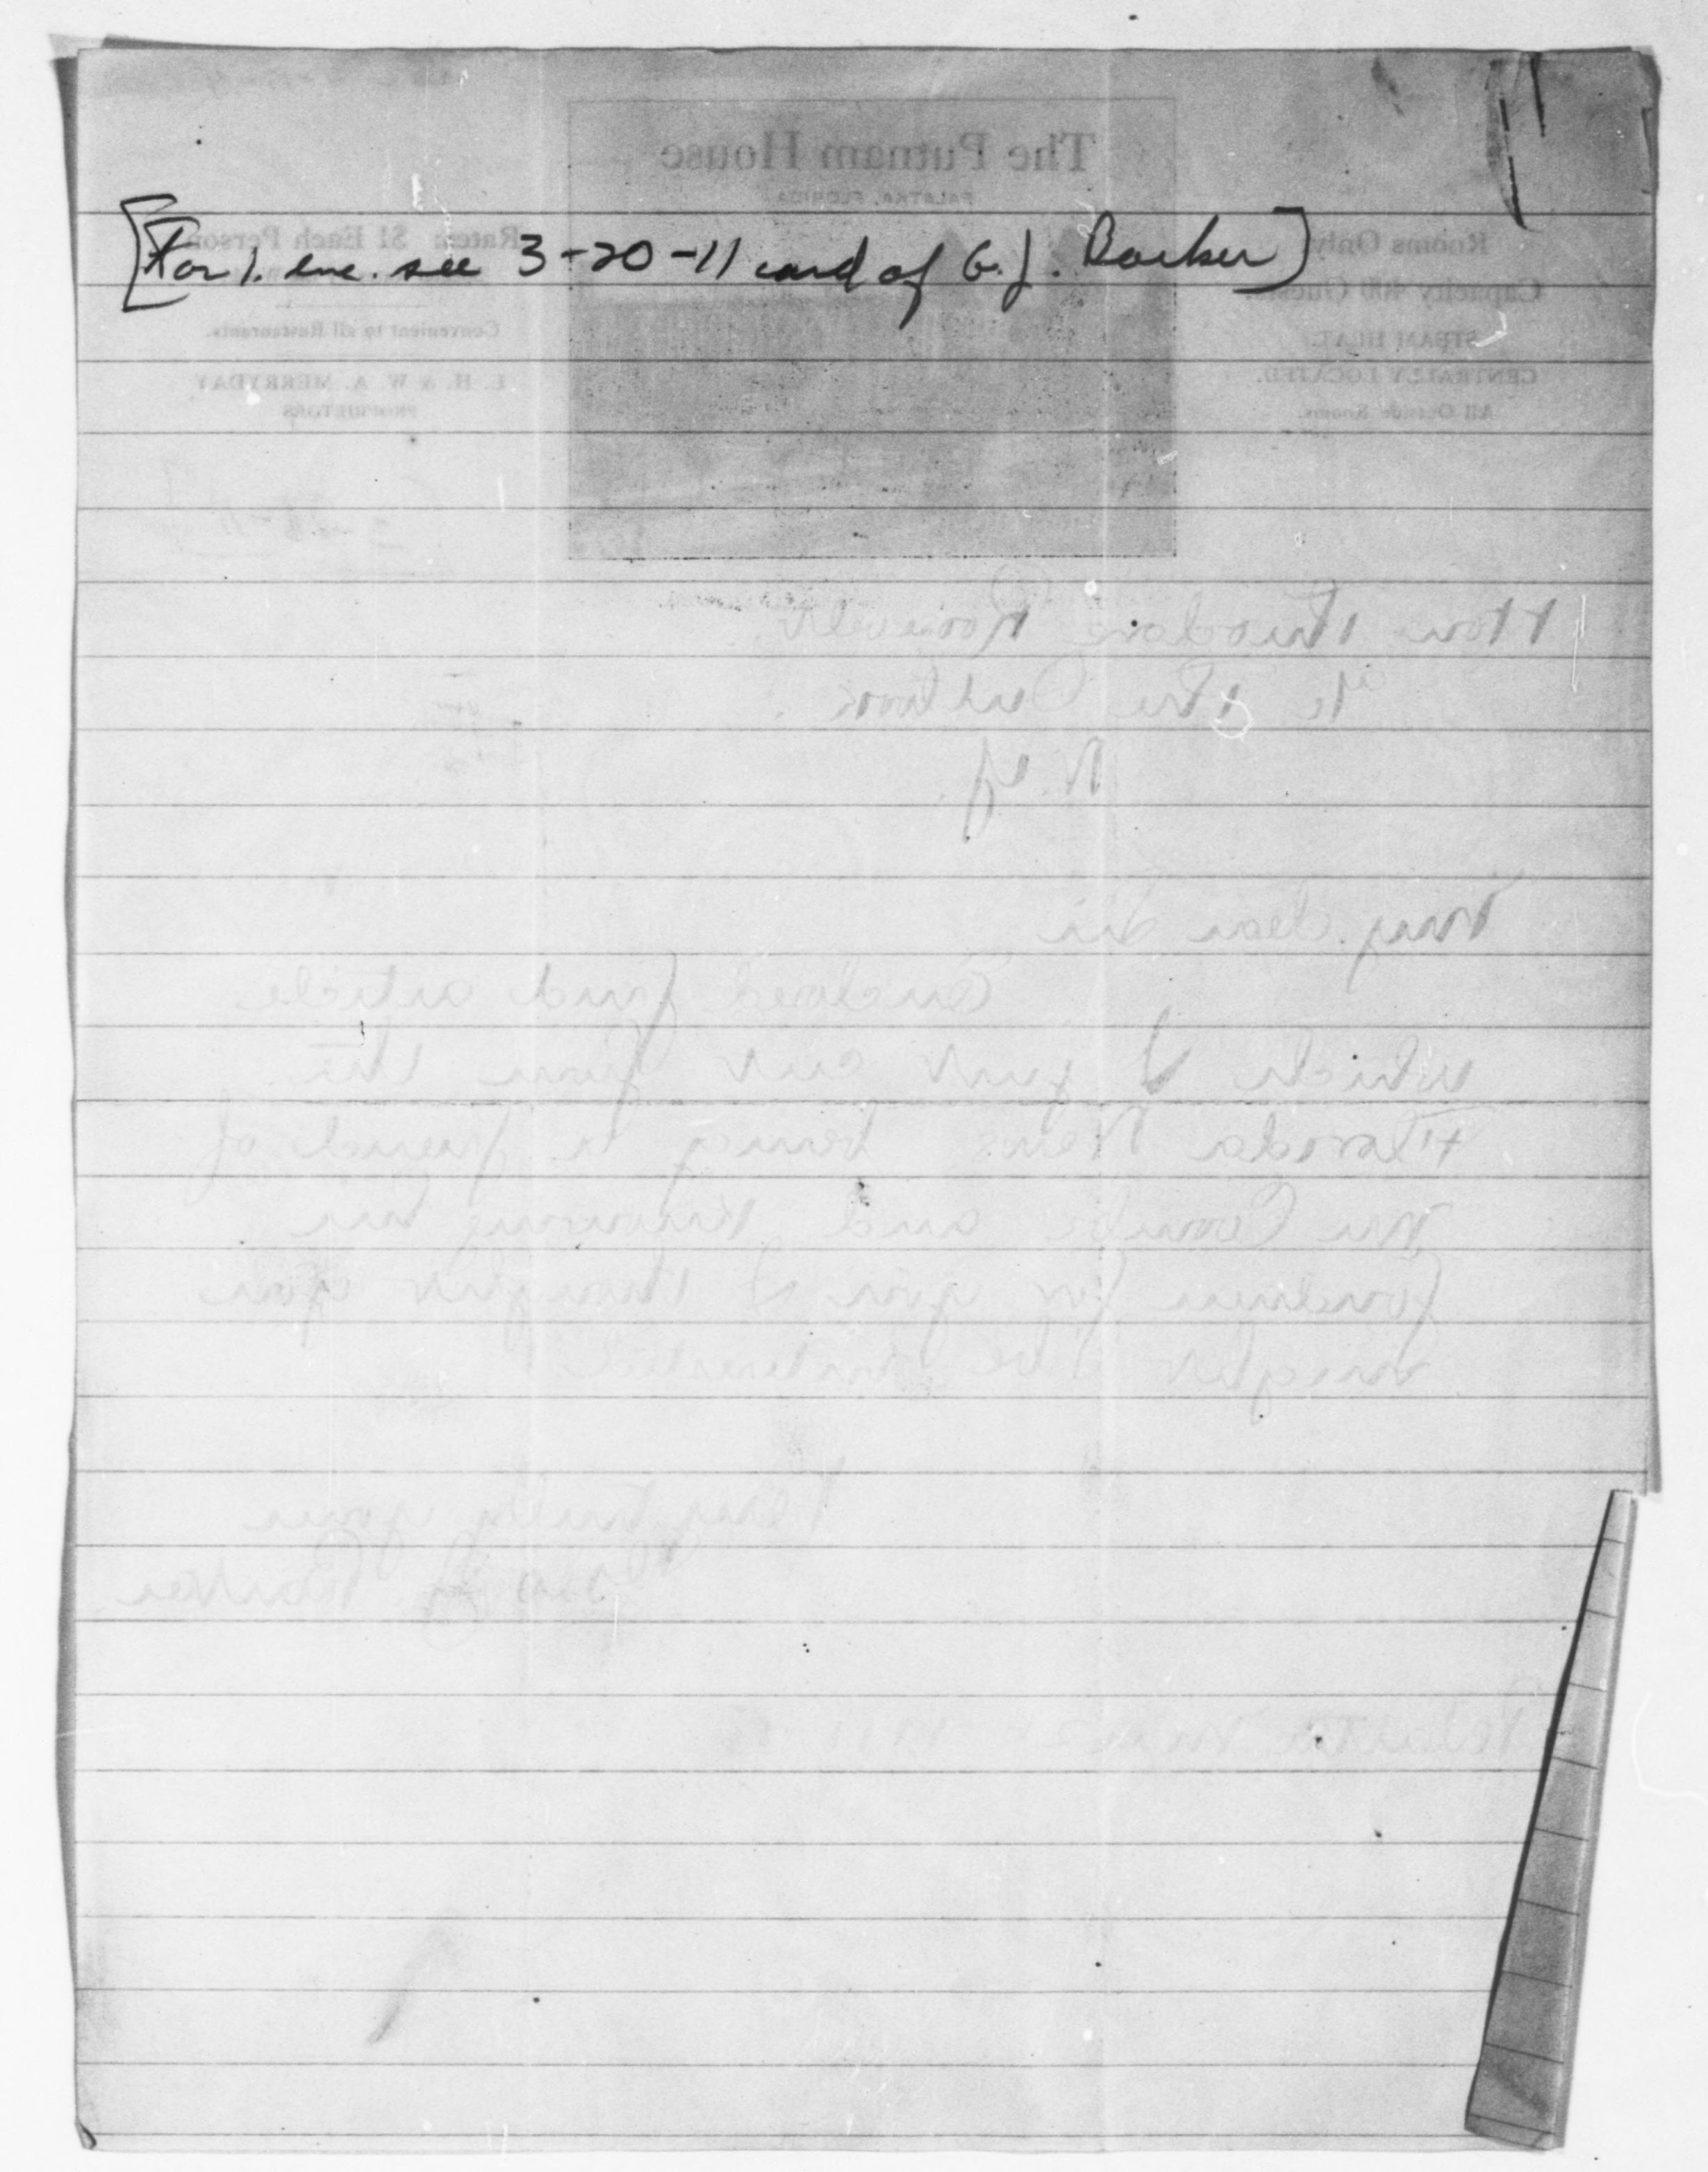 [For 1. enc. see 3-20-11 card of G. J. Barker]
The Putnam House
PALATKA, FLORIDA
Rates: $1 Each Person
Convenient to all Restaurants.
L. H. & W. A. MERRYDAY
PROPRIETORS
Rooms Only
Capacity 400 Guests.
STEAM HEAT.
CENTRALLY LOCATED.
All Outside Rooms.
Hon Theodore Roosevelt
℅ The Outlook
N.Y.
My dear Sir
Enclosed find article
which I just cut from the
Florida News being a friend of
Mr and knowing his
fondness for you I thought you
might be interested
Very truly yours
Geo J. Barker
Palatka